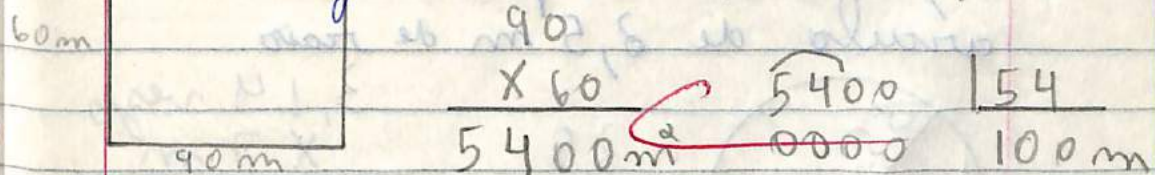 60m
90
X 60
5400m²
90m
5400 |54
0000 100m